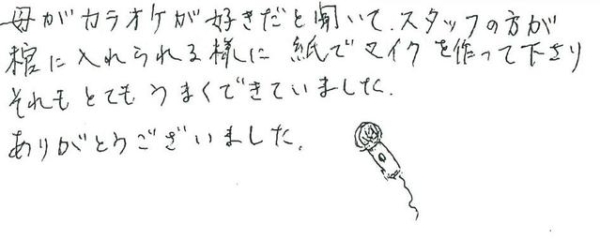 母がカラオケが好きだと聞いて、スタッフの方が
棺に入れられる様に 紙でマイクを作って下さり
それもとてもうまくできていました。
ありがとうございました。